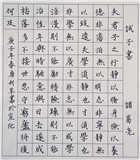 誡子書 諸葛亮
夫君子之行靜以修身儉以養
德非澹泊無以明志非寧靜無
以致遠夫學須靜也才須學也
非學無以廣才非志無以成學
慢則不能勵精險躁則不能
治性年與時馳意與日去遂成
枯落多不接世悲守窮廬將復
何及 庚子年春月 書於宣化